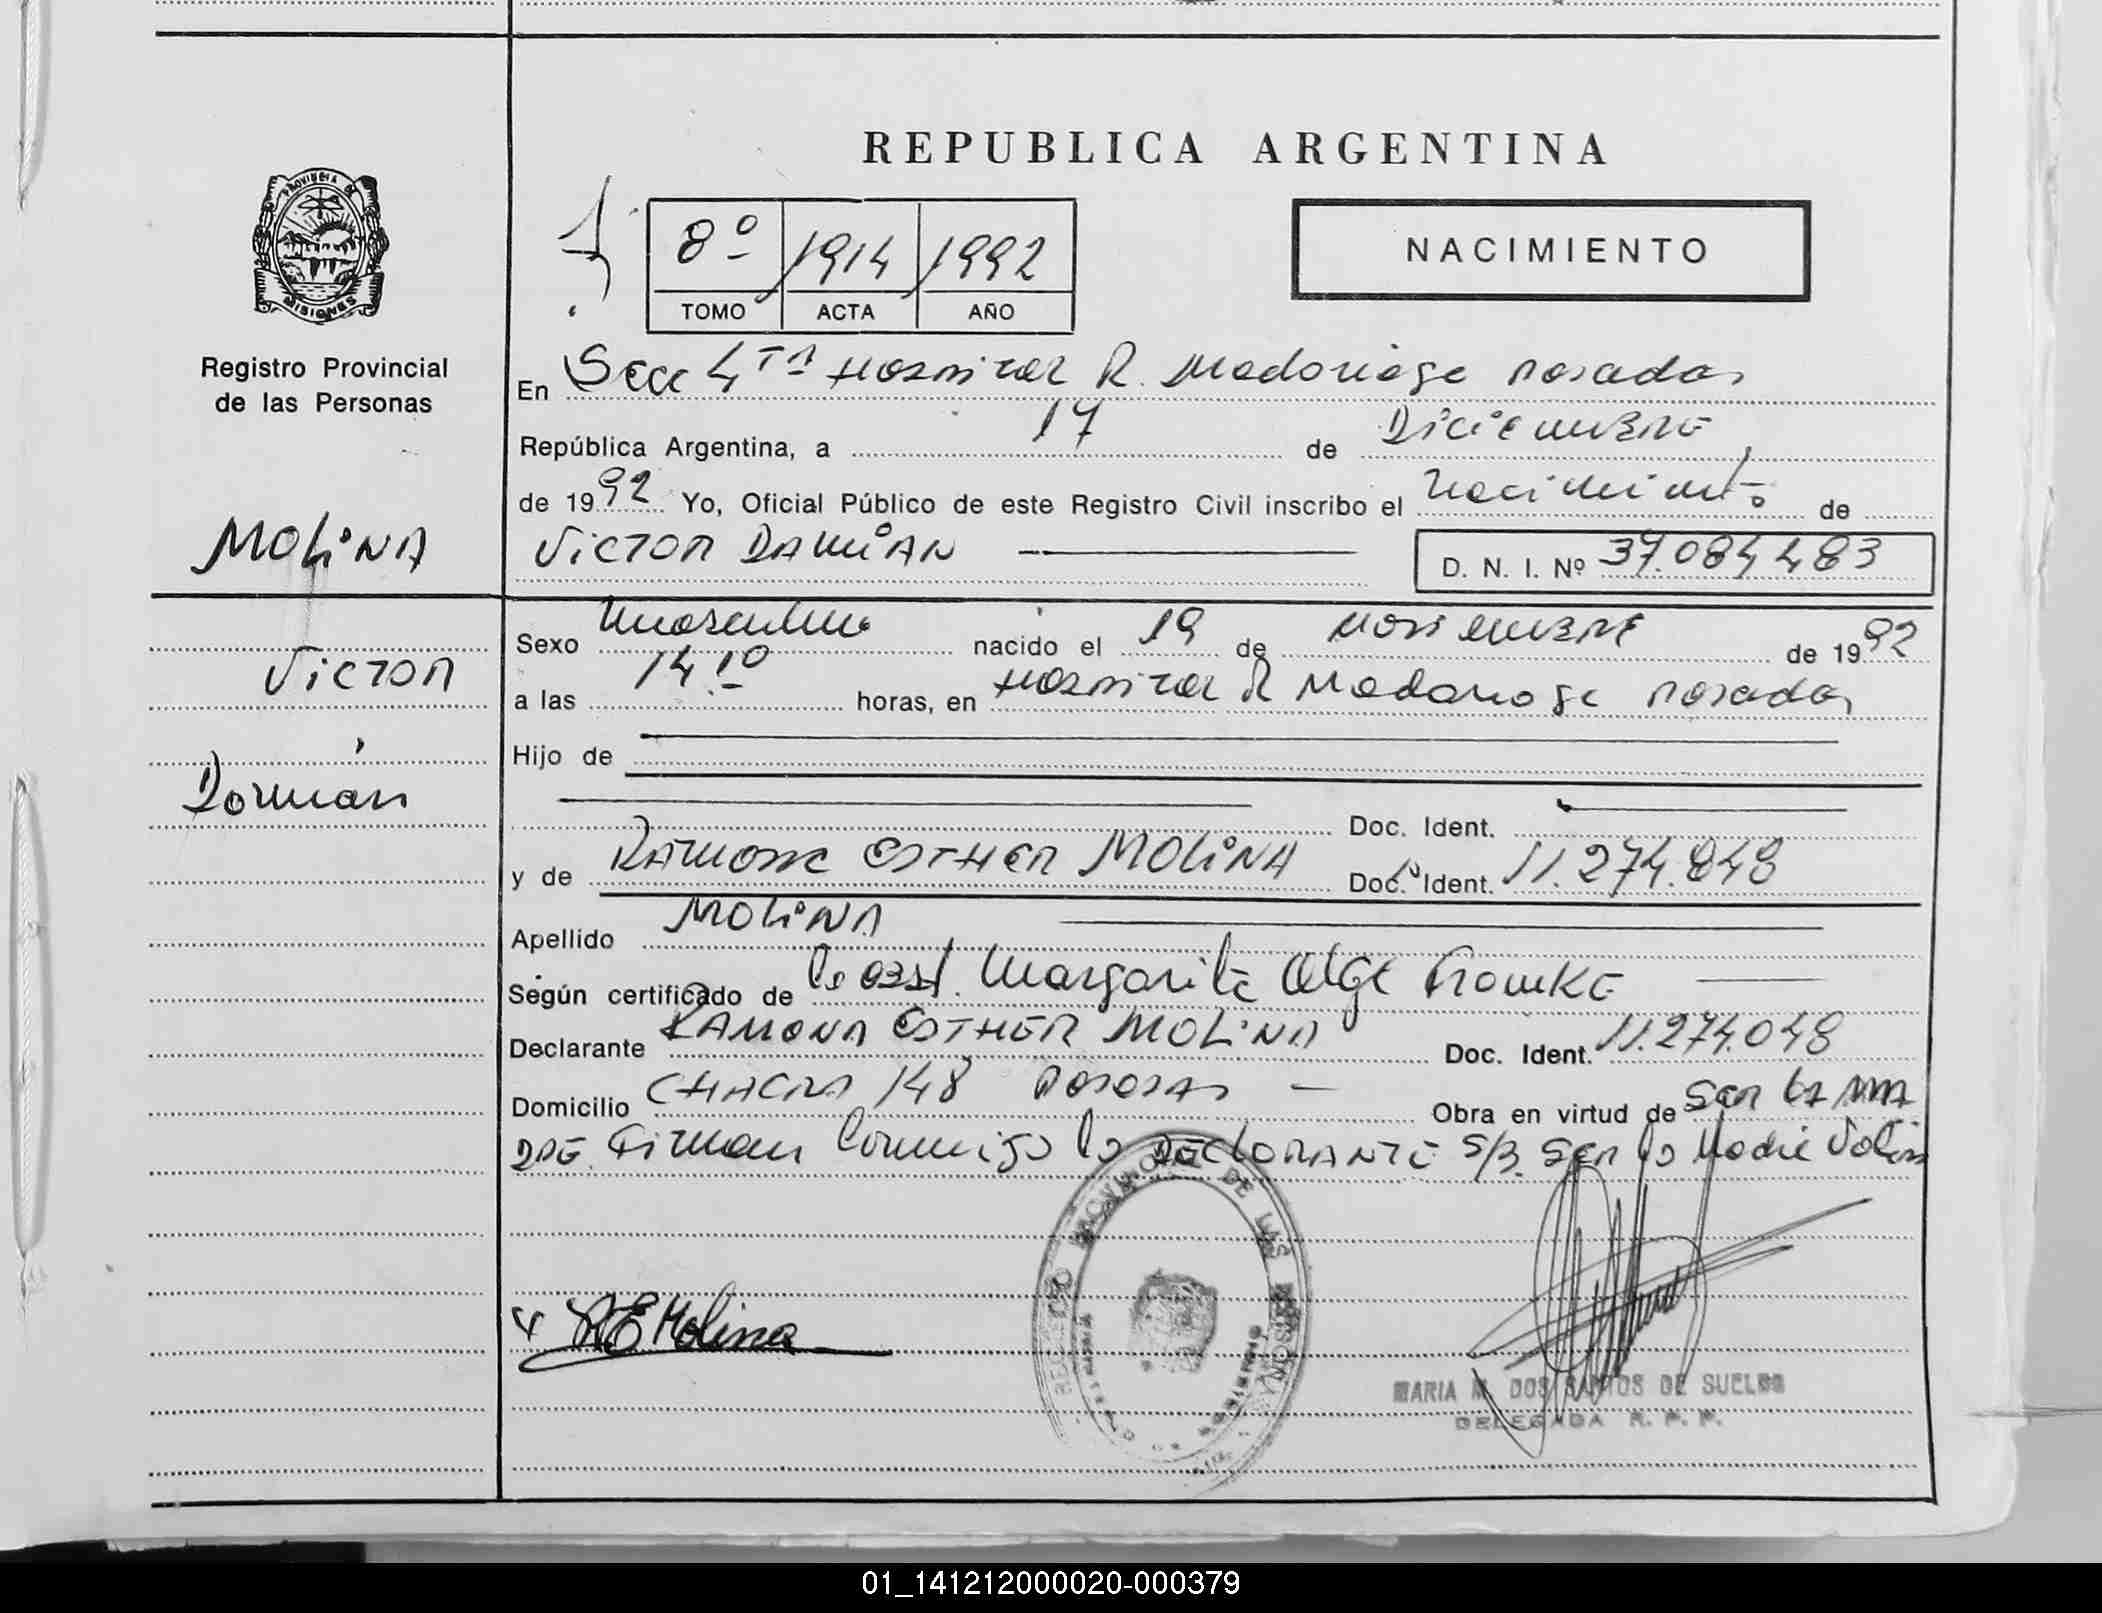 REPUBLICA ARGENTINA
PROVINCIA DE
MISIONES
Registro Provincial
de las Personas
8º 1914 1992
TOMO ACTA AÑO
NACIMIENTO
En Secc 4TA Hospital R. Madariaga Posadas
República Argentina, a 17 de Diciembre
de 1992 Yo, Oficial Público de este Registro Civil inscribo el nacimiento de
VICTOR DAMIAN D. N. I. Nº 37.084483
MOLINA
Victor
Damián
Sexo masculino nacido el 19 de noviembre de 1992
a las 14.10 horas, en Hospital R Madariaga Posadas
Hijo de
Doc. Ident.
y de RAMONA ESTHER MOLINA Doc. Ident. 11.274.048
Apellido MOLINA
Según certificado de la obst. Margarita Olga
Declarante RAMONA ESTHER MOLINA Doc. Ident. 11.274.048
Domicilio CHACRA 148 Posadas Obra en virtud de ser la MA
DRE. Firman conmigo la DECLARANTE S/B. ser la Madre
REGISTRO PROVINCIAL DE LAS PERSONAS
MISIONES
R E Molina
MARIA M. DOS SANTOS DE SUELDO
DELEGADA R. P. P.
01_141212000020-000379